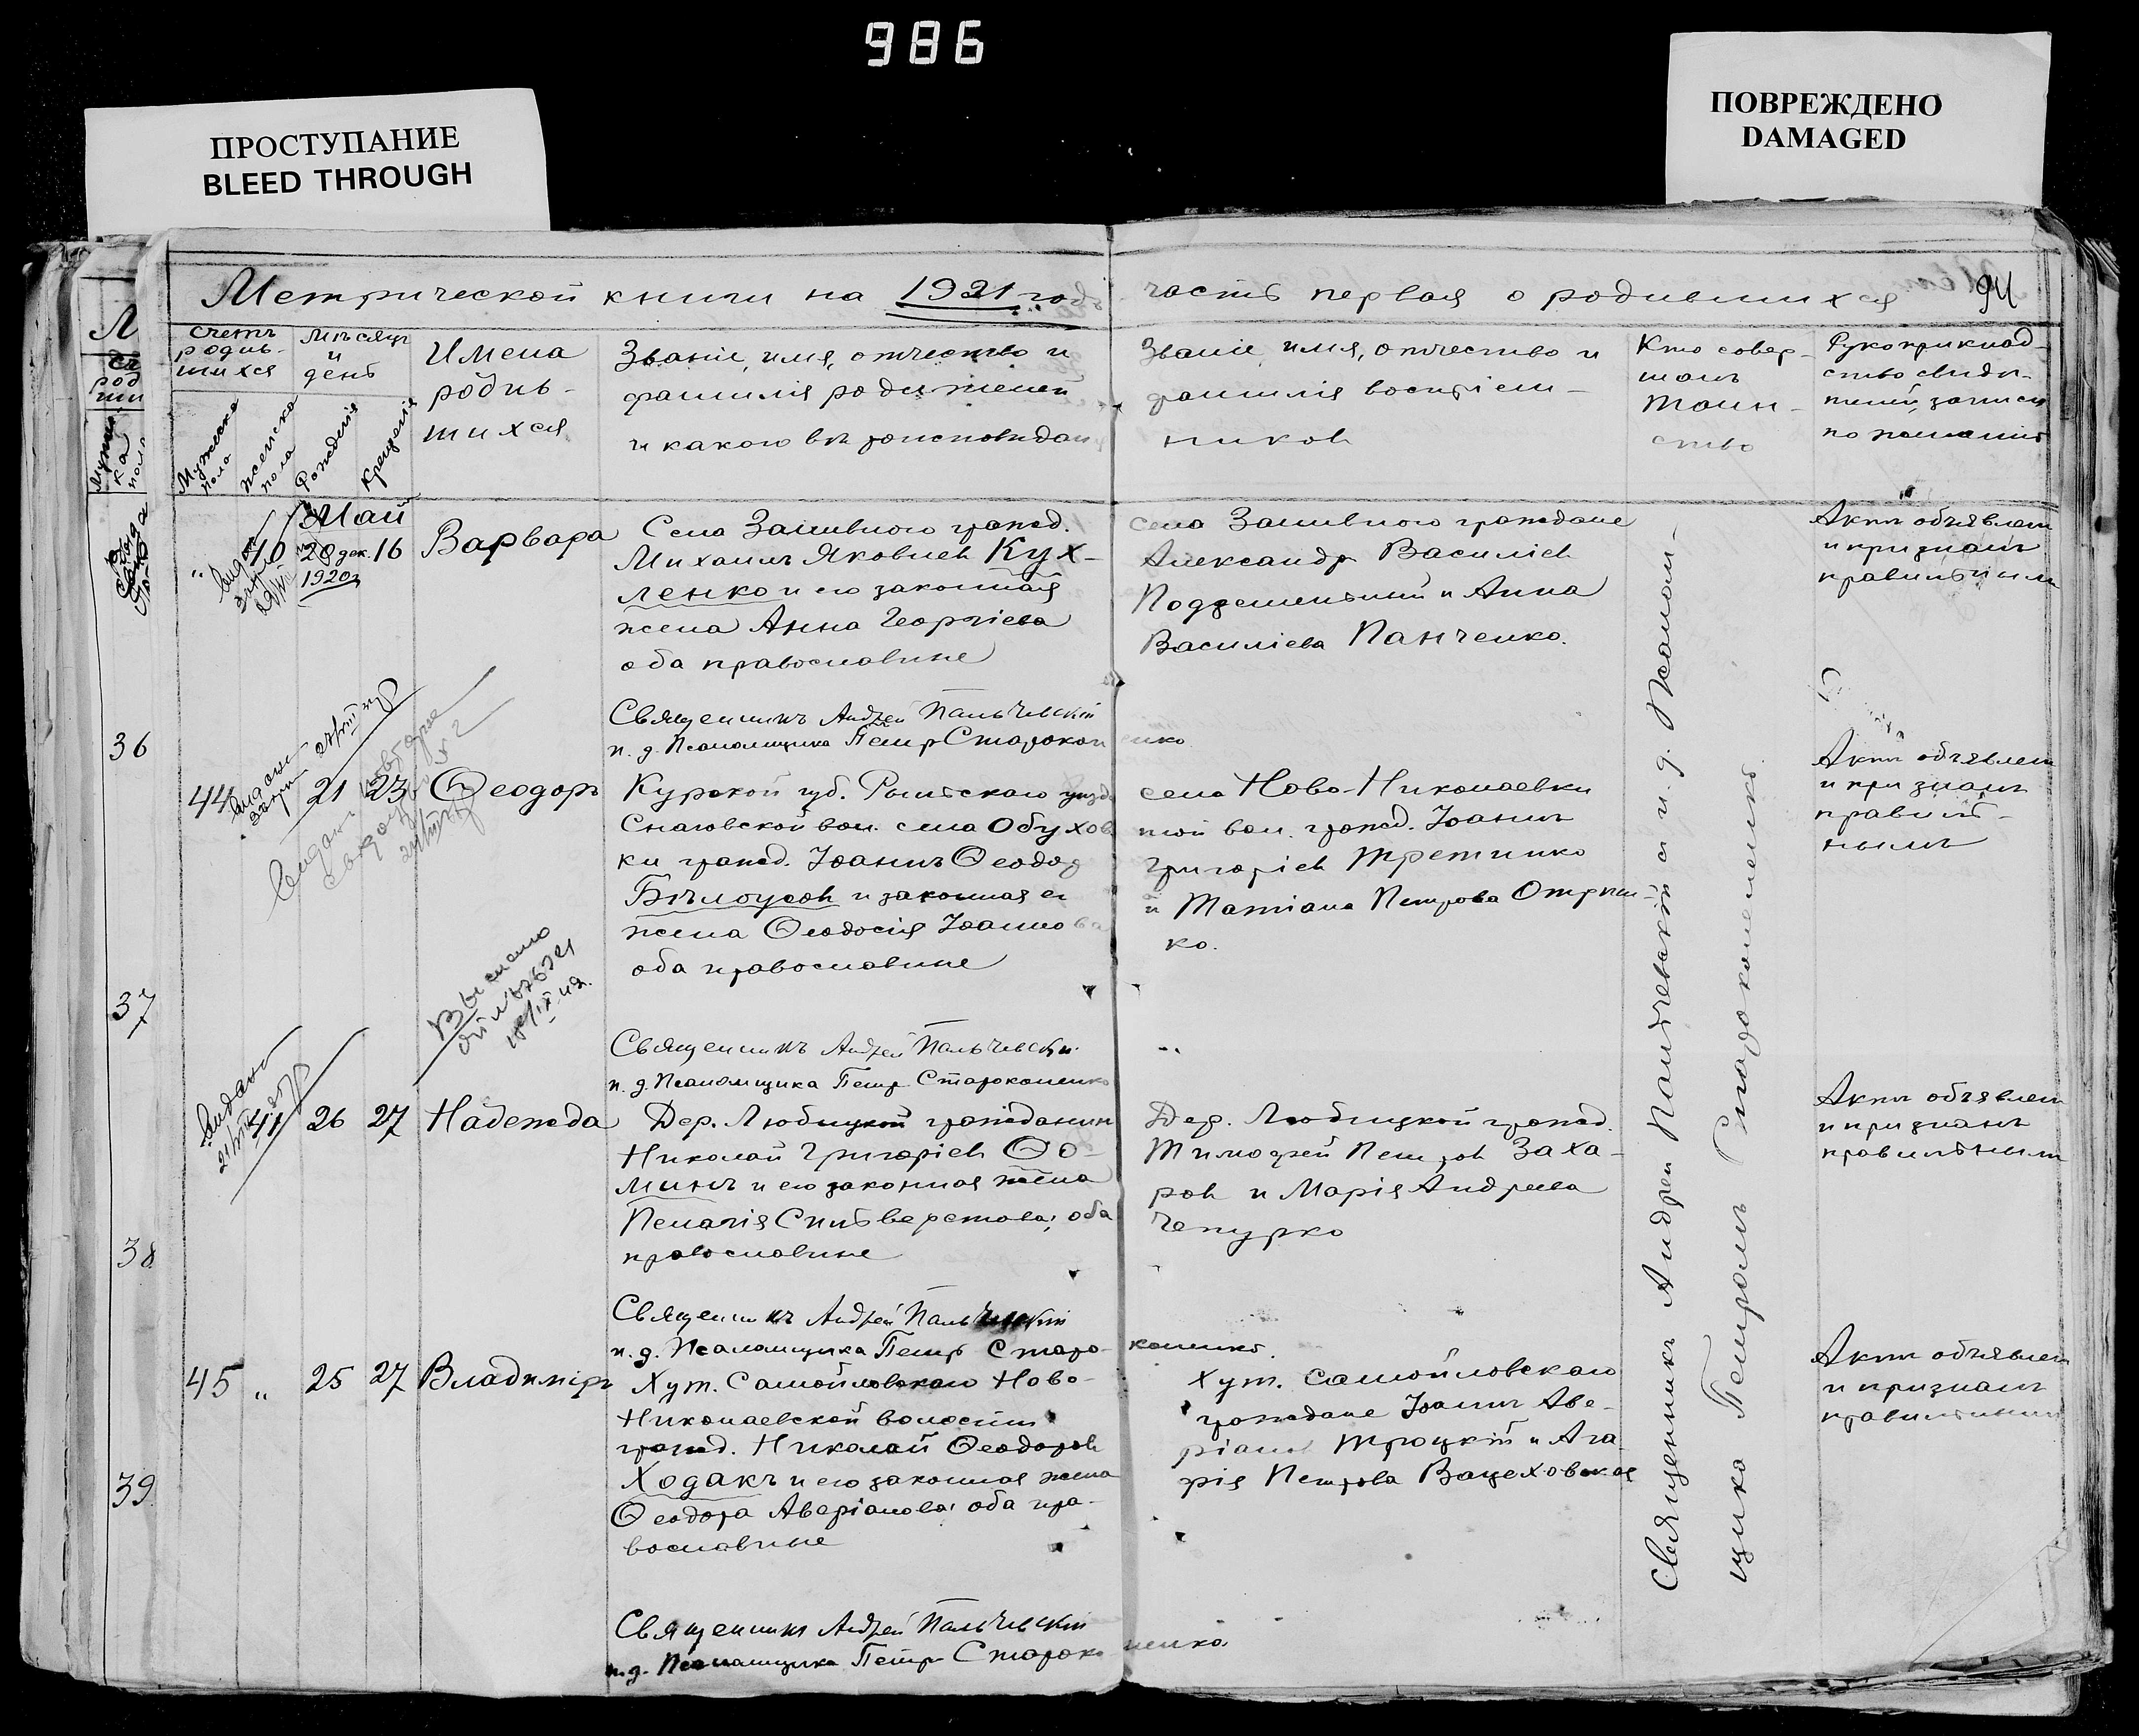 986
ПРОСТУПАНИЕ
BLEED THROUGH
ПОВРЕЖДЕНО
DAMAGED
Метрической книги на 1921 годъ
часть первая о родившихся
94
Счетъ
родив-
шихся
Мѣсяцъ
и
день
Имена
родив-
шихся
Званіе, имя, отчество и
фамилія родителей
и какого вѣроисповѣдан
Званіе, имя, отчество и
фамилія воспріем-
никовъ
Кто совер-
шалъ
таин-
ство
Рукоприклад-
ство свидѣ-
телей записи
по желанію
Мужска
пола
Женска
пола
Рожденія
Крещенія
Май
" 40 20 дек. 16 Варвара
1920
Села Заливного гражд.
Михаилъ Яковлев Кух-
ленко и его законная
жена Анна Георгіева
оба православные
Священникъ Андрей Пальчевскій
и. д. Псаломщика Петр Старокон енко
села Заливного граждане
Александр Василіев
Подземельный и Анна
Василіева Панченко.
Актъ объявлен
и признанъ
правильным
36
44 21 23 Ѳеодоръ
Курской губ. Рыльскаго уезда
Снаговской вол. села Обухов
ки гражд. Іоаннъ Ѳеодор
Бѣлоусов и законная ег
жена Ѳеодосія Іоаннова
оба православные
Священникъ Андрей Пальчевскій
и. д. Псаломщика Петр Староконенко
села Ново-Николаевки
той вол. гражд. Іоаннъ
Григоріев Третинко
и Татіана Петрова
ко.
Актъ объявлен
и признанъ
правиль-
нымъ
37
41 26 27 Надежда
Дер. Любицкой гражданин
Николай Григоріев Ѳо-
минъ и его законная жена
Пелагія Сильверстова; оба
православные
Священникъ Андрей Пальчевскій
и. д. Псаломщика Петр Старо- коненко.
Дер. Любицкой гражд.
Тимофей Петров Заха-
ров и Марія Андреева
Чепурко
Актъ объявлен
и признанъ
правильным
38
45 " 25 27 Владиміръ
Хут. Самойловскаго Ново-
Николаевской волости
гражд. Николай Ѳеодоров
Ходакъ и его законная жена
Ѳеодора Аверіанова; оба пра-
вославные
Священникъ Андрей Пальчевскій
и. д. Псаломщика Петр Староко ненко
Хут. Самойловскаго
граждане Іоаннъ Аве-
ріанов Троцкій и Ага-
рія Петрова Вацеховская
Актъ объявлен
и признанъ
правильным
39
Священникъ Андрей Пальчевскій и и. д. Псалом-
щика Петроль Староконенко